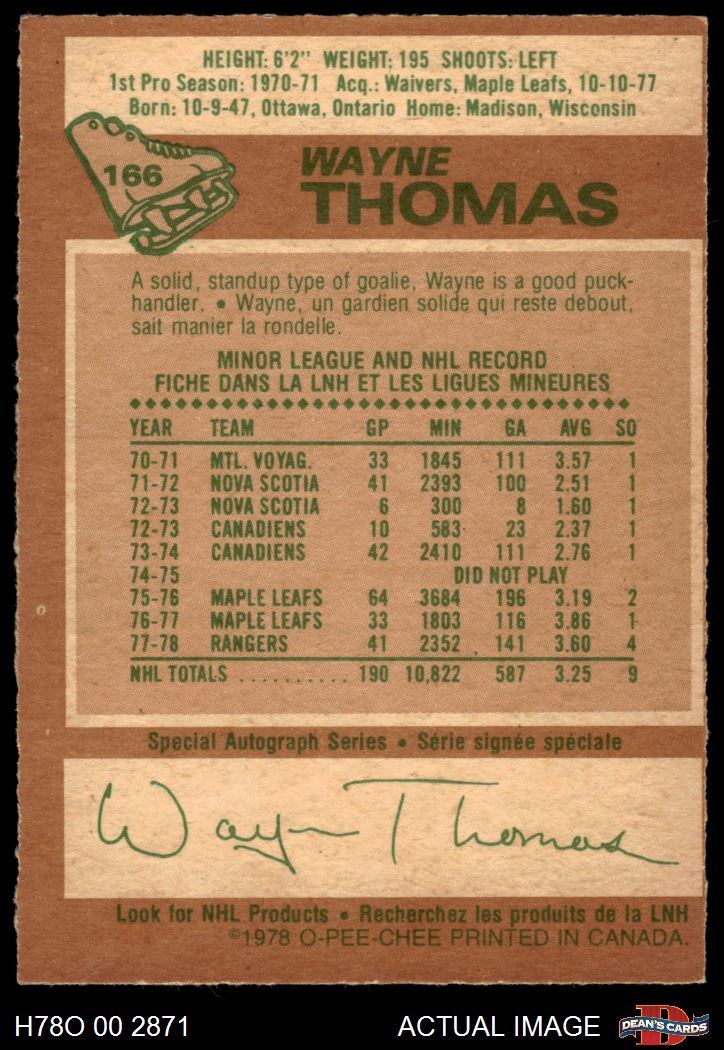 HEIGHT: 6'2" WEIGHT: 195 SHOOTS: LEFT
1st Pro Season: 1970-71 Acq.: Waivers, Maple Leafs, 10-10-77
Born: 10-9-47, Ottawa, Ontario Home: Madison, Wisconsin
166
WAYNE
THOMAS
A solid, standup type of goalie, Wayne is a good puck-
handler. • Wayne, un gardien solide qui reste debout,
sait manier la rondelle.
MINOR LEAGUE AND NHL RECORD
FICHE DANS LA LNH ET LES LIGUES MINEURES
YEAR TEAM GP MIN GA AVG SO
70-71 MTL. VOYAG. 33 1845 111 3.57 1
71-72 NOVA SCOTIA 41 2393 100 2.51 1
72-73 NOVA SCOTIA 6 300 8 1.60 1
72-73 CANADIENS 10 583 23 2.37 1
73-74 CANADIENS 42 2410 111 2.76 1
74-75 DID NOT PLAY
75-76 MAPLE LEAFS 64 3684 196 3.19 2
76-77 MAPLE LEAFS 33 1803 116 3.86 1
77-78 RANGERS 41 2352 141 3.60 4
NHL TOTALS .......... 190 10,822 587 3.25 9
Special Autograph Series • Série signée spéciale
Wayne Thomas
Look for NHL Products • Recherchez les produits de la LNH
©1978 O-PEE-CHEE PRINTED IN CANADA.
H78O 00 2871 ACTUAL IMAGE D DEAN'S CARDS